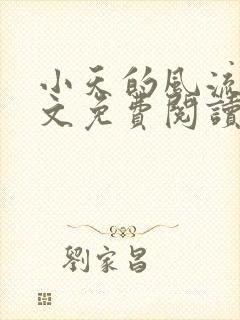 小天的風流
文免費閱讀
劉家昌